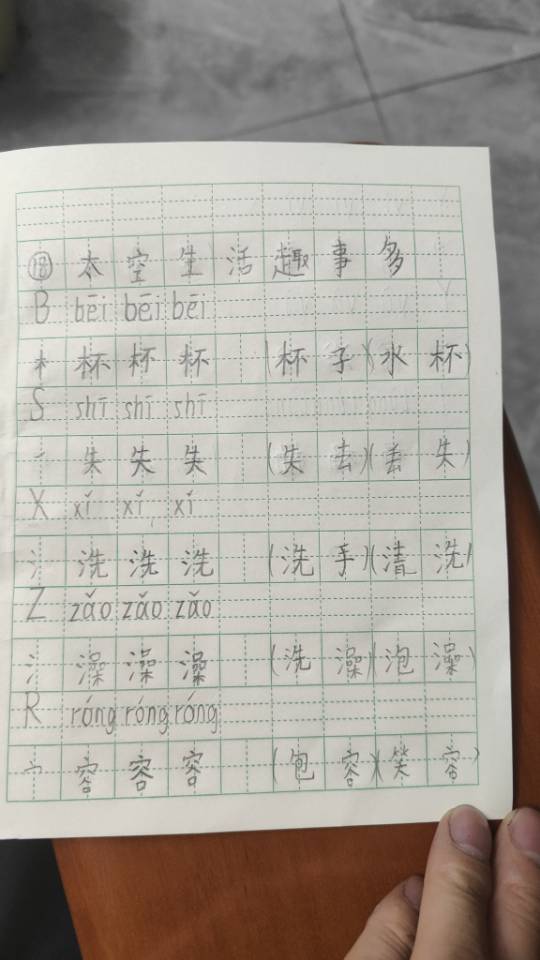 ⑱太空生活趣事多
B bēi bēi bēi
木 杯 杯 杯 (杯子)(水杯)
S shī shī shī
㇒ 失 失 失 (失去)(丢失)
X xǐ xǐ xǐ
氵 洗 洗 洗 (洗手)(清洗)
Z zǎo zǎo zǎo
氵 澡 澡 澡 (洗澡)(泡澡)
R róng róng róng
宀 容 容 容 (包容)(笑容)